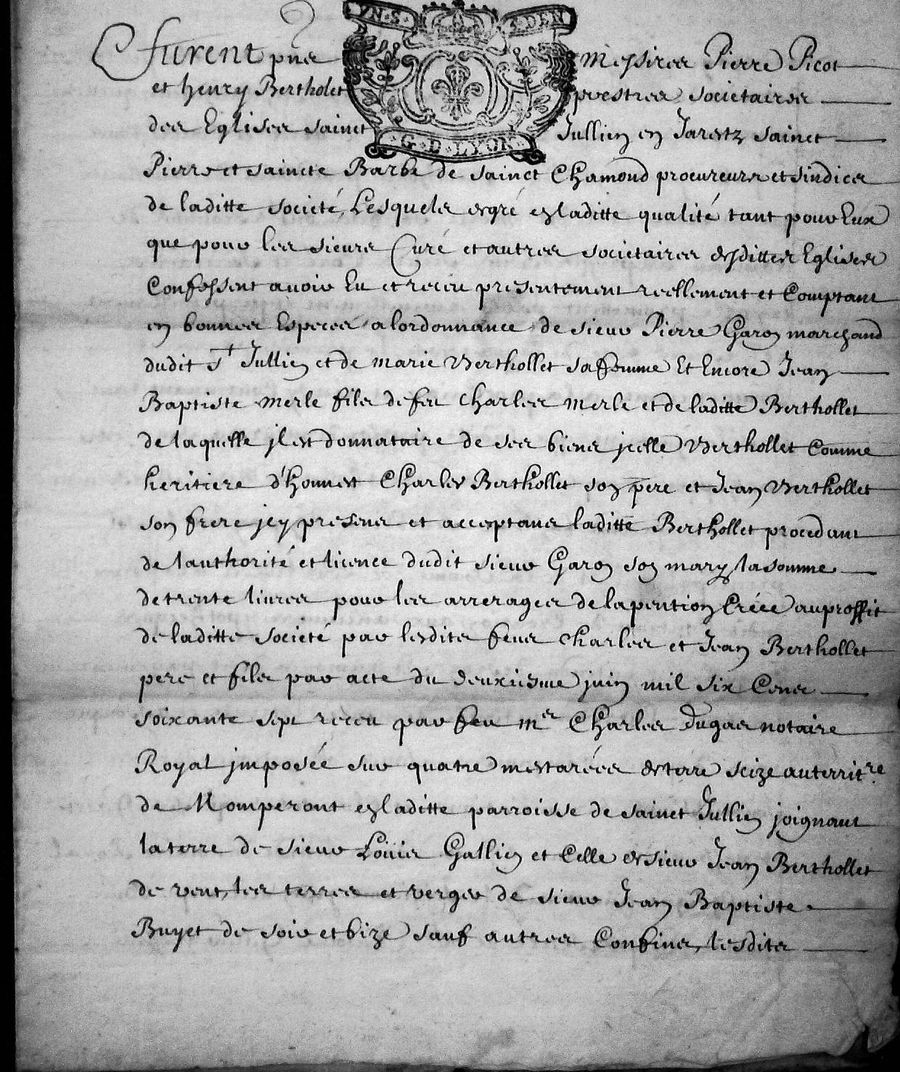 VN.S. 8.DEN
G.D.LYON.
furent pñs Messires Pierre Picot
et henry Bertholet prestres societaires
des Eglises sainct Jullien en Jaretz sainct
Pierre et saincte Barbe de sainct Chamond procureurs et sindics
de laditte societé, Lesquels de gré en laditte qualité tant pour Eux
que pour les sieurs Curé et autres societaires desdittes Eglises
Confessent avoir Eu et receu presentement reellement et Comptant
en bonnes Especes a lordonnance de sieur Pierre Garon marchand
dudit St Jullien et de marie Berthollet sa femme Et Encore Jean
Baptiste merle fils de feu Charles merle et de laditte Berthollet
de laquelle jl est donnataire de ses biens jcelle Berthollet Comme
heritiere d'honnest Charles Berthollet son pere et Jean Berthollet
son frere jcy presens et acceptans laditte Berthollet procedant
de lauthorité et licence dudit sieur Garon son mary, la somme
de trente livres pour les arrerages de la pention Créée au proffit
de laditte societé par lesdits feus Charles et Jean Berthollet
pere et fils par acte du deuxiesme juin mil six Cens
soixante sept receu par feu mer Charles Dugas notaire
Royal jmposée sur quatre mestarées de terre scize au territre
de Momperont en laditte parroisse de sainct Jullien joignant
la terre de sieur Loüis Gallien et Celle de sieur Jean Berthollet
de vent, les terres et verger de sieur Jean Baptiste
Buyet de soir et bize sauf autres Confins, lesdits